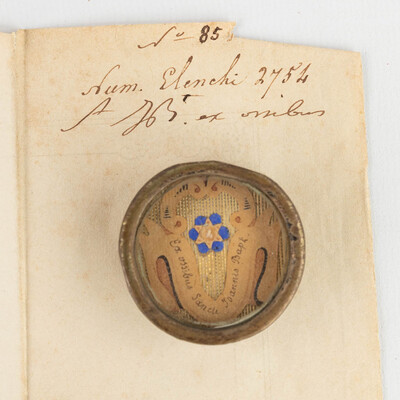 No 85
Num. Elenchi 2754
ex ossibus
Ex ossibus Sancti Joannis Bapt.